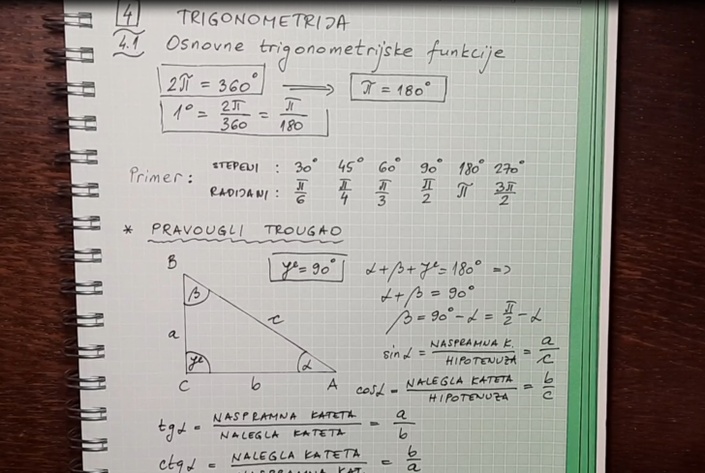 4 TRIGONOMETRIJA
4.1 Osnovne trigonometrijske funkcije
2π = 360° ⟹ π = 180°
1° = 2π/360 = π/180
Primer: STEPENI : 30° 45° 60° 90° 180° 270°
RADIJANI : π/6 π/4 π/3 π/2 π 3π/2
* PRAVOUGLI TROUGAO
B γ = 90° α + β + γ = 180° =>
β α + β = 90°
c β = 90° - α = π/2 - α
a sin α = NASPRAMNA K. / HIPOTENUZA = a/c
γ α
C b A cos α = NALEGLA KATETA / HIPOTENUZA = b/c
tg α = NASPRAMNA KATETA / NALEGLA KATETA = a/b
ctg α = NALEGLA KATETA / NASPRAMNA KAT. = b/a